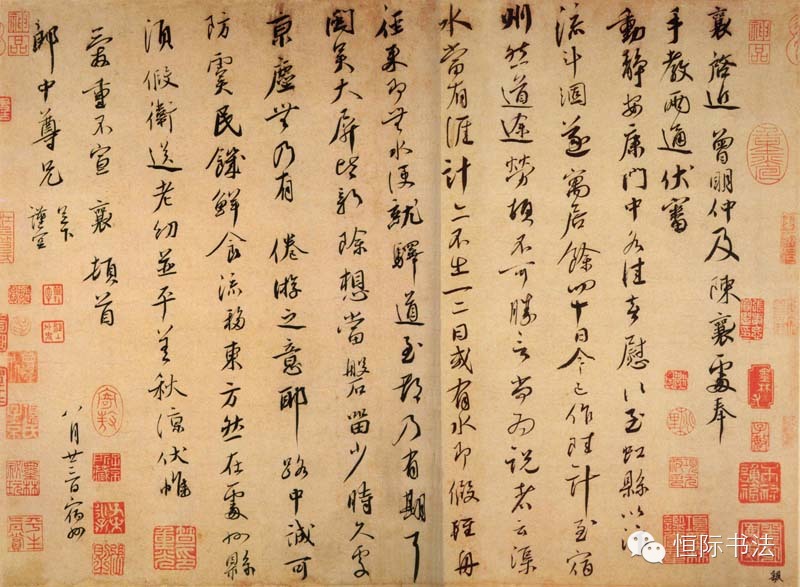 襄啓近曾明仲及陳襄處奉
手教兩通伏審
動靜安康門中各佳喜慰至虹縣以汴
流斗涸遂寓居餘四十日今已作陸計至宿
州然道途勞頓不可勝言尚為說者云渠
水當有涯計亦不出一二日或有水即假輕舟
徑來即無水便就驛道至都乃有期耳
聞吳大屏皆新除想當磐留少時久處
京塵無乃有倦游之意耶路中誠可
防虞民饑鮮食流移東方然在處州縣
須假衛送老幼並平善秋涼伏惟
重不宣襄頓首
郎中尊兄
足下
謹空
八月廿三日宿州
神品
恒际书法